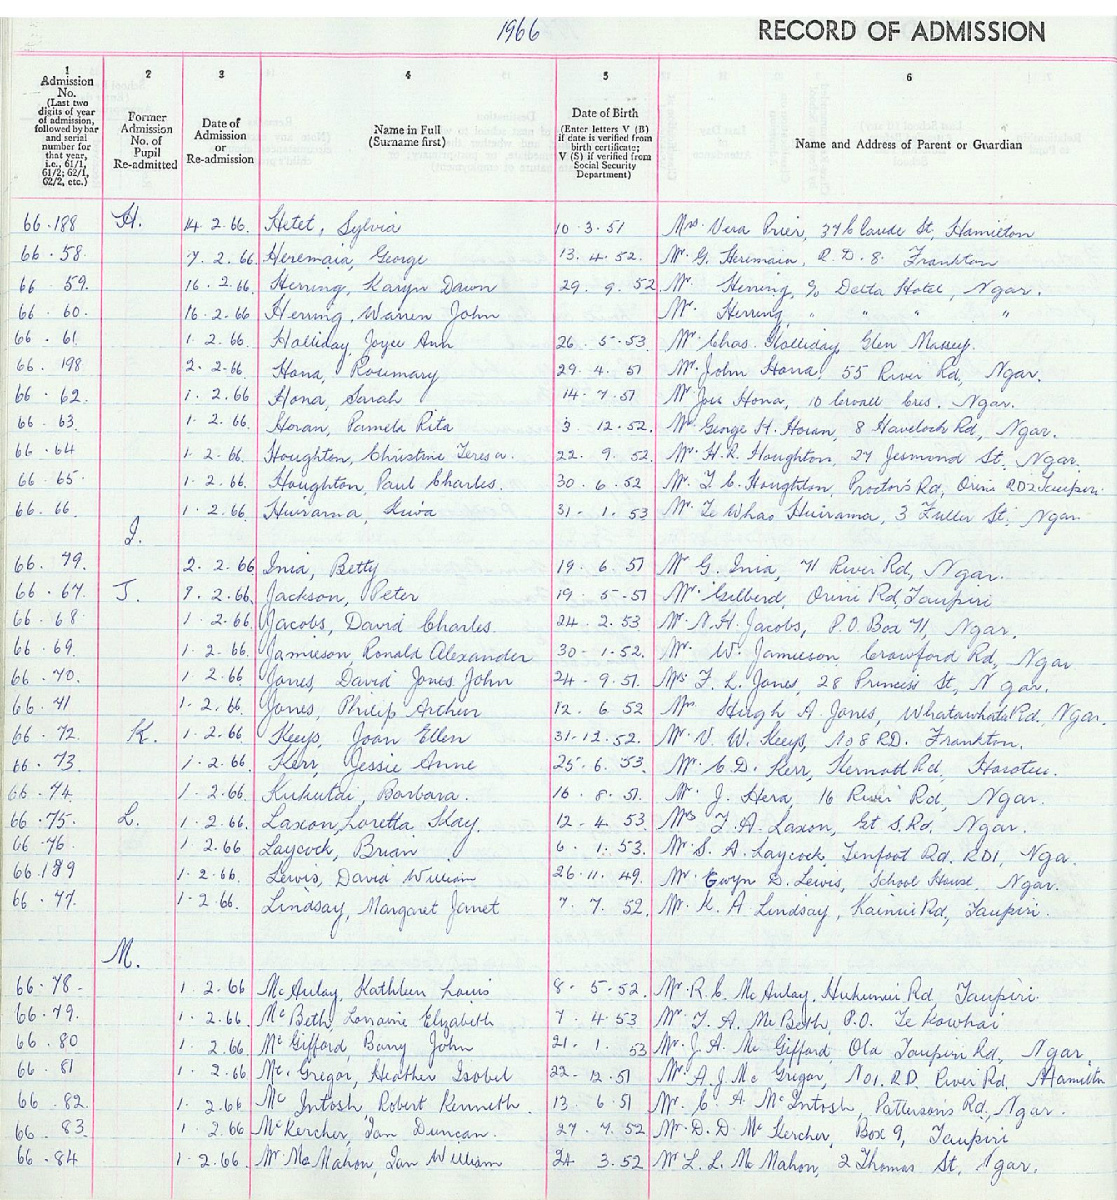 1966 RECORD OF ADMISSION
1 2 3 4 5 6
Admission No. (Last two digits of year of admission, followed by bar and serial number for that year, i.e., 61/1, 61/2; 62/1, 62/2, etc.) Former Admission No. of Pupil Re-admitted Date of Admission or Re-admission Name in Full (Surname first) Date of Birth (Enter letters V (B) if date is verified from birth certificate; V (S) if verified from Social Security Department) Name and Address of Parent or Guardian
66.188 H. 14.2.66. Hetet, Sylvia 10.3.51 Mrs. Vera Prier, Claude St, Hamilton
66.58. 7.2.66. Heremaia, George 13.4.52. Mr. G. Heremaia, R.D.8. Frankton
66.59. 16.2.66. Herring, Karyn Dawn 29.9.52 Mr. Herring, c/o Delta Hotel, Ngar.
66.60. 16.2.66 Herring, Warren John Mr. Herring, " " " "
66.61. 1.2.66. Holliday, Joyce Ann 26.5.53 Mr. Chas. Holliday, Glen Massey.
66.198 2.2.66 Hona, Rosemary 29.4.51 Mr. John Hona, 55 River Rd, Ngar.
66.62. 1.2.66 Hona, Sarah 14.7.51 Mr Joe Hona, 10 Croall Cres. Ngar.
66.63. 1.2.66. Horan, Pamela Rita 3.12.52. Mr. George H. Horan, 8 Havelock Rd, Ngar.
66.64 1.2.66. Houghton, Christine Teresa. 22.9.52. Mr. H.R. Houghton, 27 Jesmond St. Ngar.
66.65. 1.2.66. Houghton, Paul Charles. 30.6.52 Mr. T. C. Houghton, Proctor's Rd, Orini RD2 Taupiri
66.66. 1.2.66. Huirama, Kiwa 31.1.53 Mr. Te Whao Huirama, 3 Fuller St. Ngar
I.
66.199. 2.2.66 Inia, Betty 19.6.51 Mr G. Inia, 71 River Rd, Ngar.
66.67. J. 8.2.66. Jackson, Peter 19.5.51 Mr. Gilberd, Orini Rd, Taupiri
66.68. 1.2.66 Jacobs, David Charles. 24.2.53 Mr. N.H. Jacobs, P.O. Box 71, Ngar.
66.69. 1.2.66. Jamieson, Ronald Alexander 30.1.52. Mr. W. Jamieson Crawford Rd, Ngar
66.70. 1.2.66 Jones, David Jones John 24.9.51. Mrs F. L. Jones, 28 Princess St, Ngar.
66.71 1.2.66 Jones, Philip Arthur 12.6.52 Mr. Hugh A. Jones, Whatawhata Rd, Ngar.
66.72 K. 1.2.66 Keeys, Joan Ellen 31.12.52. Mr. V. W. Keeys, No 8 RD. Frankton.
66.73 1.2.66. Kerr, Jessie Anne 25.6.53 Mr. C.D. Kerr, Kernott Rd, Horotiu.
66.74. 1.2.66. Kukutai, Barbara. 16.8.51. Mr. J. Hera, 16 River Rd, Ngar.
66.75. L. 1.2.66. Laxon, Loretta Kay. 12.4.53 Mrs T. A. Laxon, Gt S. Rd, Ngar.
66.76. 1.2.66 Laycock, Brian 6.1.53. Mr. S. A. Laycock, Tenfoot Rd. RD1, Ngar.
66.189 1.2.66. Lewis, David William 26.11.49. Mr. Gwyn D. Lewis, School House Ngar.
66.77. 1.2.66. Lindsay, Margaret Janet 7.7.52. Mr. K. A Lindsay, Kainui Rd, Taupiri.
M.
66.78. 1.2.66 McAulay, Kathleen Louis 8.5.52. Mr. R.C. McAulay, Hukunui Rd, Taupiri.
66.79. 1.2.66. McBeth, Lorraine Elyzabeth 7.4.53 Mr. T. A. McBeth, P.O. Te Kowhai
66.80 1.2.66. McGifford, Barry John 21.1.53 Mr. J. A. McGifford, Old Taupiri Rd, Ngar.
66.81 1.2.66 McGregor, Heather Isobel 22.12.51 Mr. A. J. McGregor, No1. RD. River Rd, Hamilton
66.82. 1.2.66 McIntosh, Robert Kenneth. 13.6.51 Mr. C. A McIntosh, Patterson's Rd, Ngar.
66.83. 1.2.66 McKercher, Ian Duncan. 27.7.52 Mr. D. D. McKercher, Box 9, Taupiri
66.84 1.2.66. Mr McMahon, Ian William 24.3.52 Mr L. L. McMahon, 2 Thomas St, Ngar.